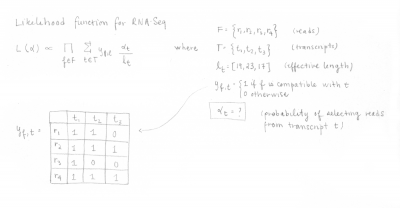 Likelihood function for RNA-Seq
L(α) ∝ ∏ f∈F ∑ t∈T y_{f,t} α_t / l_t where
F = {r₁, r₂, r₃, r₄} (reads)
T = {t₁, t₂, t₃} (transcripts)
l_t = [19, 23, 17] (effective length)
y_{f,t} = {1 if f is compatible with t
0 otherwise
α_t = ? (probability of selecting reads
from transcript t)
y_{f,t} =
t₁ t₂ t₃
r₁ 1 1 0
r₂ 1 1 1
r₃ 1 0 0
r₄ 1 1 1